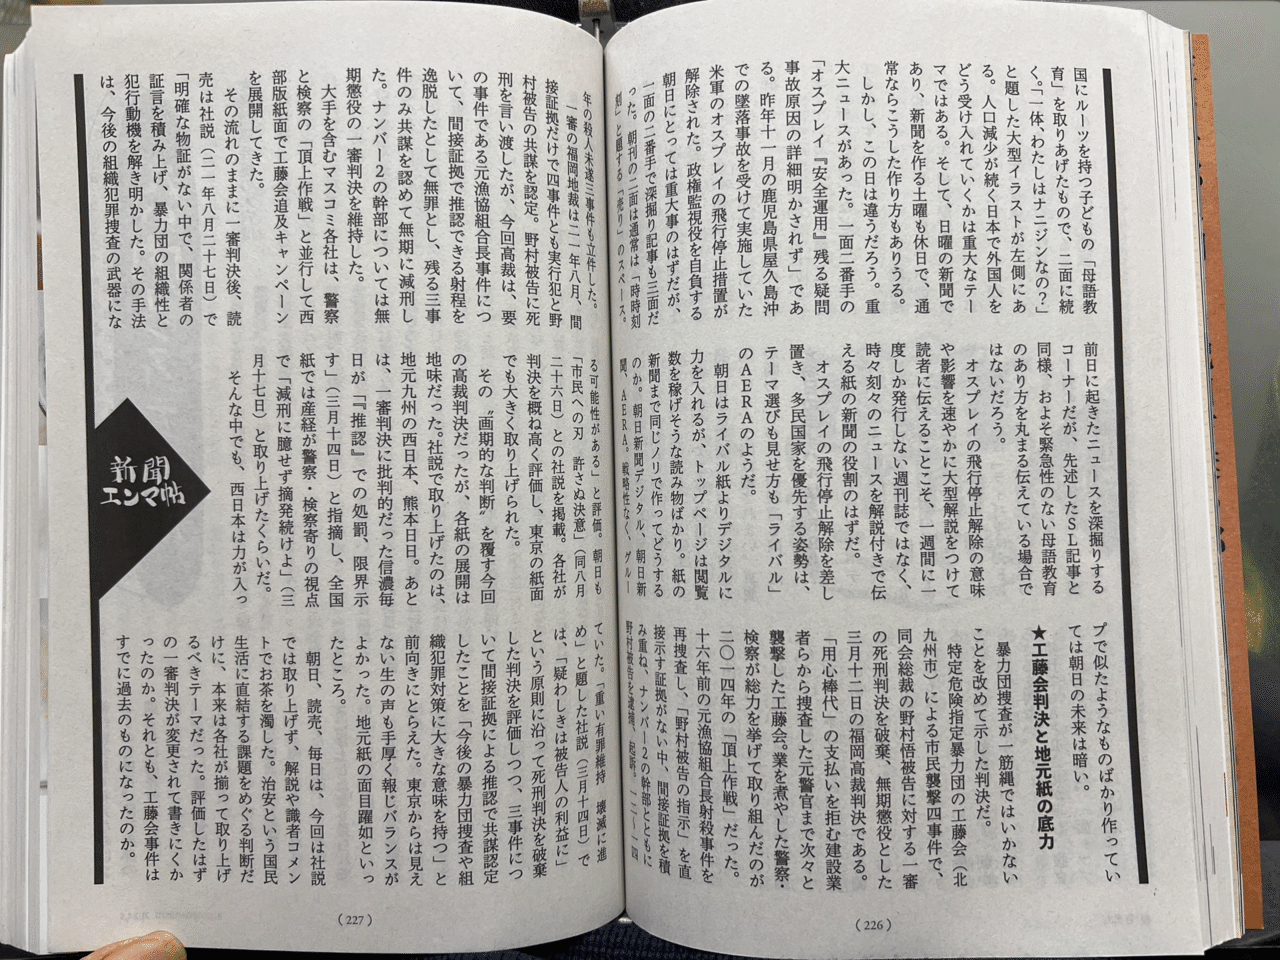 国にルーツを持つ子どもの「母語教
育」を取りあげたもので、二面に続
く。「一体、わたしはナニジンなの？」
と題した大型イラストが左側にあ
る。人口減少が続く日本で外国人を
どう受け入れていくかは重大なテー
マではある。そして、日曜の新聞で
あり、新聞を作る土曜も休日で、通
常ならこうした作り方もありうる。
しかし、この日は違うだろう。重
大ニュースがあった。一面二番手の
「オスプレイ『安全運用』残る疑問
事故原因の詳細明かされず」であ
る。昨年十一月の鹿児島県屋久島沖
での墜落事故を受けて実施していた
米軍のオスプレイの飛行停止措置が
解除された。政権監視役を自負する
朝日にとっては重大事のはずだが、
一面の二番手で深掘り記事も三面だ
った。朝刊の二面は通常は「時時刻
刻」と題する「売り」のスペース。
前日に起きたニュースを深掘りする
コーナーだが、先述したSL記事と
同様、およそ緊急性のない母語教育
のあり方を丸まる伝えている場合で
はないだろう。
オスプレイの飛行停止解除の意味
や影響を速やかに大型解説をつけて
読者に伝えることこそ、一週間に一
度しか発行しない週刊誌ではなく、
時々刻々のニュースを解説付きで伝
える紙の新聞の役割のはずだ。
オスプレイの飛行停止解除を差し
置き、多民国家を優先する姿勢は、
テーマ選びも見せ方も「ライバル」
のAERAのようだ。
朝日はライバル紙よりデジタルに
力を入れるが、トップページは閲覧
数を稼げそうな読み物ばかり。紙の
新聞まで同じノリで作ってどうする
のか。朝日新聞デジタル、朝日新
聞、AERA。戦略性なく、グルー
プで似たようなものばかり作ってい
ては朝日の未来は暗い。
★工藤会判決と地元紙の底力
暴力団捜査が一筋縄ではいかない
ことを改めて示した判決だ。
特定危険指定暴力団の工藤会（北
九州市）による市民襲撃四事件で、
同会総裁の野村悟被告に対する一審
の死刑判決を破棄、無期懲役とした
三月十二日の福岡高裁判決である。
「用心棒代」の支払いを拒む建設業
者らから捜査した元警官まで次々と
襲撃した工藤会。業を煮やした警察・
検察が総力を挙げて取り組んだのが
二〇一四年の「頂上作戦」だった。
十六年前の元漁協組合長射殺事件を
再捜査し、「野村被告の指示」を直
接示す証拠がない中、間接証拠を積
み重ね、ナンバー2の幹部とともに
野村被告を逮捕、起訴。一二〜一四
（226）
年の殺人未遂三事件も立件した。
一審の福岡地裁は二一年八月、間
接証拠だけで四事件とも実行犯と野
村被告の共謀を認定。野村被告に死
刑を言い渡したが、今回高裁は、要
の事件である元漁協組合長事件につ
いて、間接証拠で推認できる射程を
逸脱したとして無罪とし、残る三事
件のみ共謀を認めて無期に減刑し
た。ナンバー2の幹部については無
期懲役の一審判決を維持した。
大手を含むマスコミ各社は、警察
と検察の「頂上作戦」と並行して西
部版紙面で工藤会追及キャンペーン
を展開してきた。
その流れのままに一審判決後、読
売は社説（二一年八月二十七日）で
「明確な物証がない中で、関係者の
証言を積み上げ、暴力団の組織性と
犯行動機を解き明かした。その手法
は、今後の組織犯罪捜査の武器にな
る可能性がある」と評価。朝日も
「市民への刃　許さぬ決意」（同八月
二十六日）との社説を掲載。各社が
判決を概ね高く評価し、東京の紙面
でも大きく取り上げられた。
その〝画期的な判断〟を覆す今回
の高裁判決だったが、各紙の展開は
地味だった。社説で取り上げたのは、
地元九州の西日本、熊本日日。あと
は、一審判決に批判的だった信濃毎
日が「『推認』での処罰、限界示
す」（三月十四日）と指摘し、全国
紙では産経が警察・検察寄りの視点
で「減刑に臆せず摘発続けよ」（三
月十七日）と取り上げたくらいだ。
そんな中でも、西日本は力が入っ
ていた。「重い有罪維持　壊滅に進
め」と題した社説（三月十四日）で
は、「疑わしきは被告人の利益に」
という原則に沿って死刑判決を破棄
した判決を評価しつつ、三事件につ
いて間接証拠による推認で共謀認定
したことを「今後の暴力団捜査や組
織犯罪対策に大きな意味を持つ」と
前向きにとらえた。東京からは見え
ない生の声も手厚く報じバランスが
よかった。地元紙の面目躍如といっ
たところ。
朝日、読売、毎日は、今回は社説
では取り上げず、解説や識者コメン
トでお茶を濁した。治安という国民
生活に直結する課題をめぐる判断だ
けに、本来は各社が揃って取り上げ
るべきテーマだった。評価したはず
の一審判決が変更されて書きにくか
ったのか。それとも、工藤会事件は
すでに過去のものになったのか。
新聞
エンマ帖
（227）